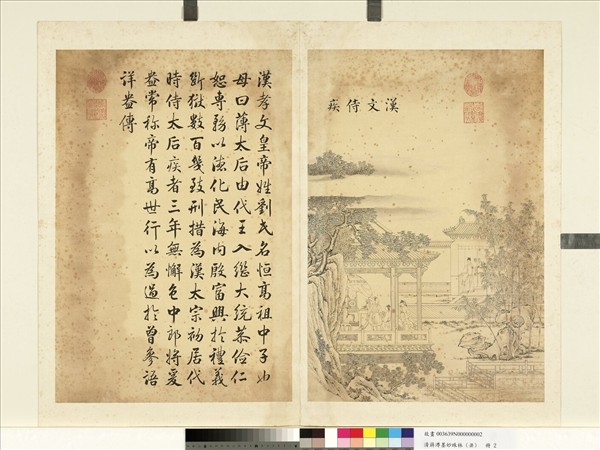 漢文侍疾
漢孝文皇帝姓劉氏名恒高祖中子也
母曰薄太后由代王入繼大統恭儉仁
恕專務以德化民海内殷富興於禮義
斷獄數百幾致刑措為漢太宗初居代
時侍太后疾者三年無懈色中郎將爰
盎常称帝有高世行以為過於曾參語
詳盎傳
故畫 003639N000000002
清蔣溥墨妙珠林